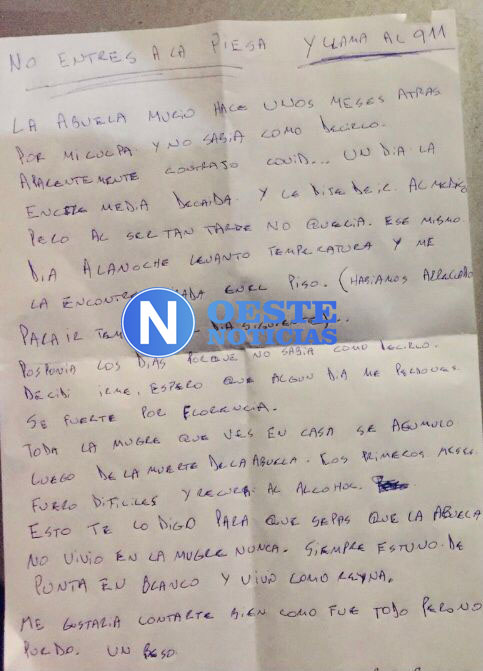 NO ENTRES A LA PIESA Y LLAMA AL 911
LA ABUELA MURIO HACE UNOS MESES ATRAS
POR MI CULPA Y NO SABIA COMO DECIRLO.
APARENTEMENTE CONTRAJO COVID... UN DIA LA
ENCTRE MEDIA DECAIDA. Y LE DIJE DE IR AL MEDICO
PERO AL SER TAN TARDE NO QUERIA. ESE MISMO
DIA A LA NOCHE LEVANTO TEMPERATURA Y ME
LA ENCONTRE EN EL PISO. (HABIAMOS ARREGLADO
PARA IR DIA SIGUIENTE)...
N OESTE NOTICIAS
POSPONIA LOS DIAS PORQUE NO SABIA COMO DECIRLO.
DECIDI IRME, ESPERO QUE ALGUN DIA ME PERDONES.
SE FUERTE POR FLORENCIA.
TODA LA MUGRE QUE VES EN CASA SE ACUMULO
LUEGO DE LA MUERTE DE LA ABUELA. LOS PRIMEROS MESES
FUERO DIFICILES Y RECURRI AL ALCOHOL.
ESTO TE LO DIGO PARA QUE SEPAS QUE LA ABUELA
NO VIVIO EN LA MUGRE NUNCA. SIEMPRE ESTUVO DE
PUNTA EN BLANCO Y VIVIO COMO REYNA.
ME GUSTARIA CONTARTE BIEN COMO FUE TODO PERO NO
PUEDO. UN BESO